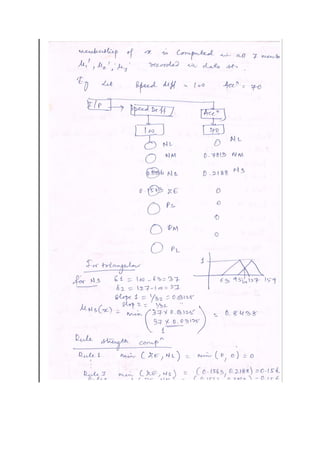 membership of x is Computed in all 7 memb
μ₁', μ₂', μ₃' recorded in data st.
Eg Let Speed Diff = 100 Accⁿ = 70
I/P Speed Diff Accⁿ
100 70
NL 0 NL
NM 0.7813 NM
NS 0.2188 NS
ZE 0
PS 0
0
PM 0
PL
For triangular
for NS δ1 = 100 - 63 = 37 1 63 95 127 159
δ2 = 127 - 100 = 27
Slope 1 = 1/32 = 0.03125
Slop 2 = 1/32
μNS(x) = min (37 × 0.03125 = 0.8438
27 × 0.03125
1
Rule strength compⁿ
Rule 1 min (ZE, NL) = min (0, 0) = 0
Rule 2 min (ZE, NS) = (0.1563, 0.2188) = 0.156